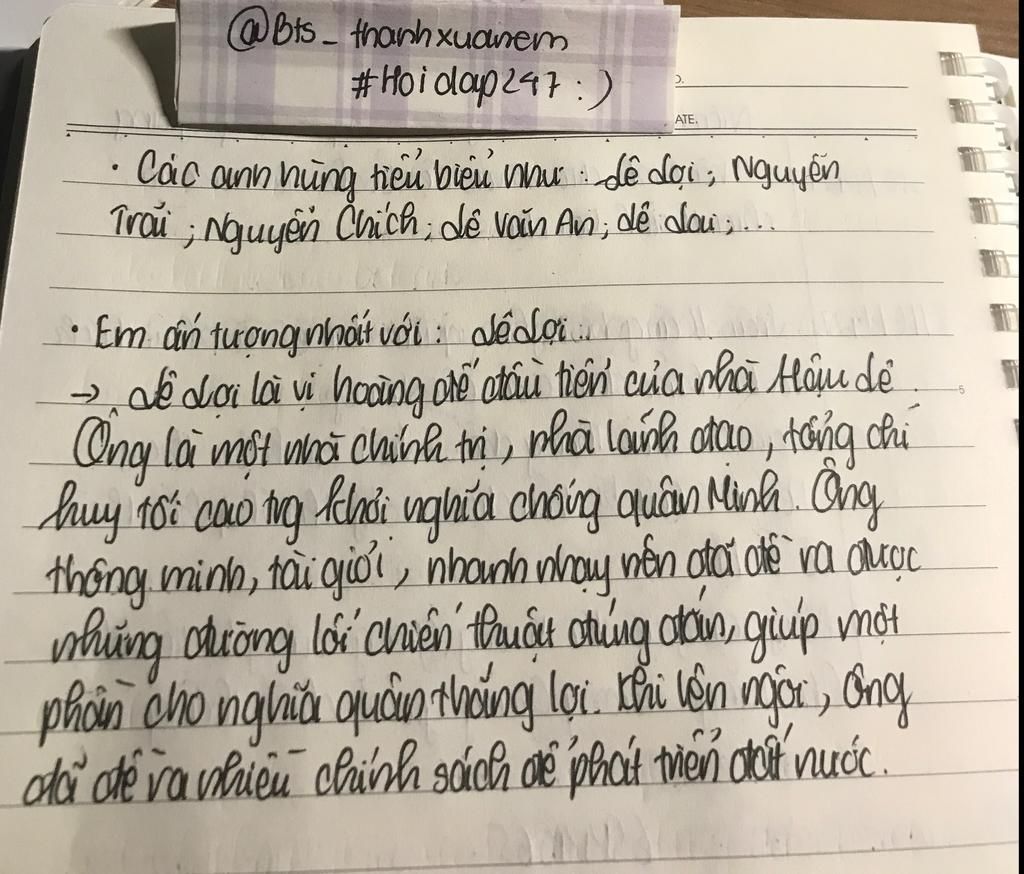 @Bts_thanhxuanem
#Hoidap247 :)
ATE.
· Các anh hùng tiểu biểu như: Lê Lợi; Nguyễn
Trãi; Nguyễn Chích; Lê Văn An; Lê Lai;...
· Em ấn tượng nhất với: Lê Lợi.
→ Lê Lợi là vị hoàng đế đầu tiên của nhà Hậu Lê.
5
Ông là một nhà chính trị, nhà lãnh đạo, tổng chỉ
huy tối cao trg khởi nghĩa chống quân Minh. Ông
thông minh, tài giỏi, nhanh nhạy nên đã đề ra được
những đường lối chiến thuật đúng đắn, giúp một
phần cho nghĩa quân thắng lợi. Khi lên ngôi, ông
đã đề ra nhiều chính sách để phát triển đất nước.